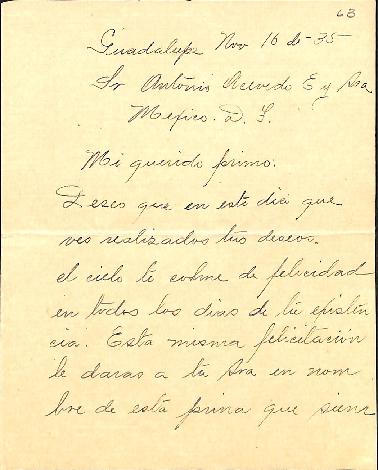 63
Guadalupe Nov 16 de -35
Sr Antonio Acevedo E y Sra
Mexico. D. F.
Mi querido primo.
Deseo que en este dia que
ves realizados tus deseos.
el cielo te colme de felicidad
en todos los dias de tu existen
cia. Esta misma felicitación
le daras a tu Sra en nom
bre de esta prima que siem